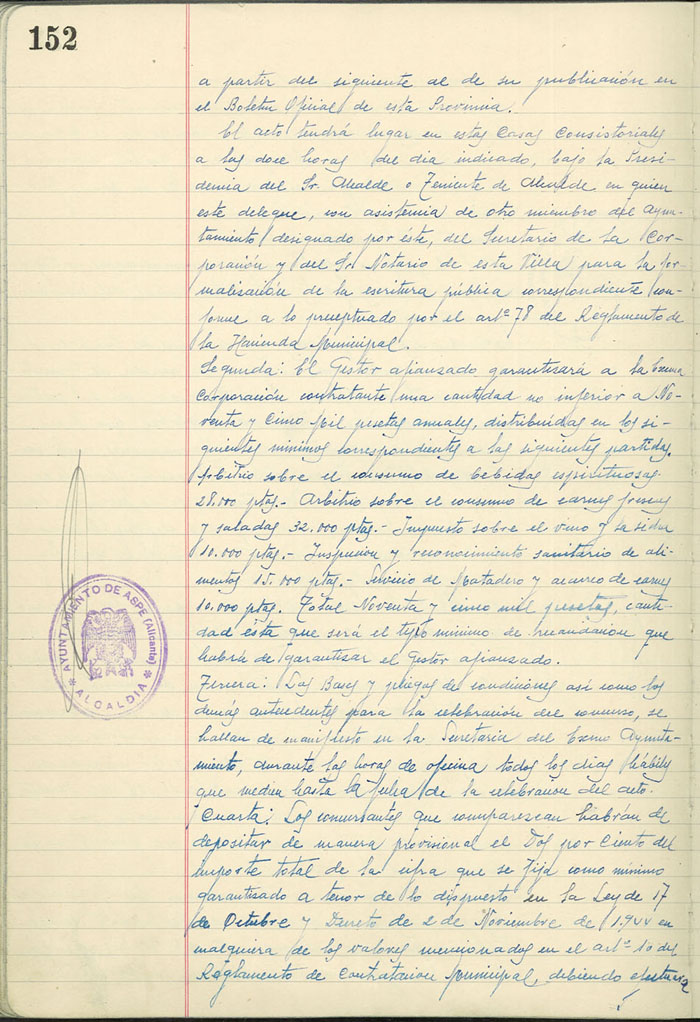 152
a partir del siguiente al de su publicación en
el Boletin Oficial de esta Provincia.
El acto tendrá lugar en estas Casas Consistoriales
a las doce horas del dia indicado, bajo la Presi-
dencia del Sr. Alcalde o Teniente de Alcalde en quien
este delegue, con asistencia de otro miembro del Ayun-
tamiento designado por éste, del Secretario de la Cor-
poración y del Sr. Notario de esta Villa para la for-
malización de la escritura pública correspondiente con-
forme a lo preceptuado por el artº 78 del Reglamento de
la Hacienda Municipal.
Segunda: El Gestor afianzado garantizará a la Excma
Corporación contratante una cantidad no inferior a No-
venta y Cinco Mil pesetas anuales, distribuidas en los si-
guientes minimos correspondientes a las siguientes partidas.
Arbitrio sobre el consumo de bebidas espirituosas
28.000 ptas.- Arbitrio sobre el consumo de carnes frescas
y saladas 32.000 ptas.- Impuesto sobre el vino y la sidra
10.000 ptas.- Inspección y reconocimiento sanitario de ali-
mentos 15.000 ptas.- Servicio de Matadero y acarreo de carnes
10.000 ptas. Total Noventa y cinco mil pesetas, canti-
dad ésta que será el tipo minimo de recaudación que
habrá de garantizar el Gestor afianzado.
Tercera: Las Bases y pliegos de condiciones así como los
demás antecedentes para la celebración del concurso, se
hallan de manifiesto en la Secretaria del Excmo Ayunta-
miento, durante las horas de oficina todos los dias hábiles
que median hasta la fecha de la celebración del acto.
Cuarta: Los concursantes que comparezcan habrán de
depositar de manera provisional el Dos por Ciento del
importe total de la cifra que se fija como mínimo
garantizado a tenor de lo dispuesto en la Ley de 17
de Octubre y Decreto de 2 de Noviembre de 1.944 en
cualquiera de los valores mencionados en el artº 10 del
Reglamento de Contratación Municipal, debiendo
AYUNTAMIENTO DE ASPE (Alicante)
* ALCALDIA *